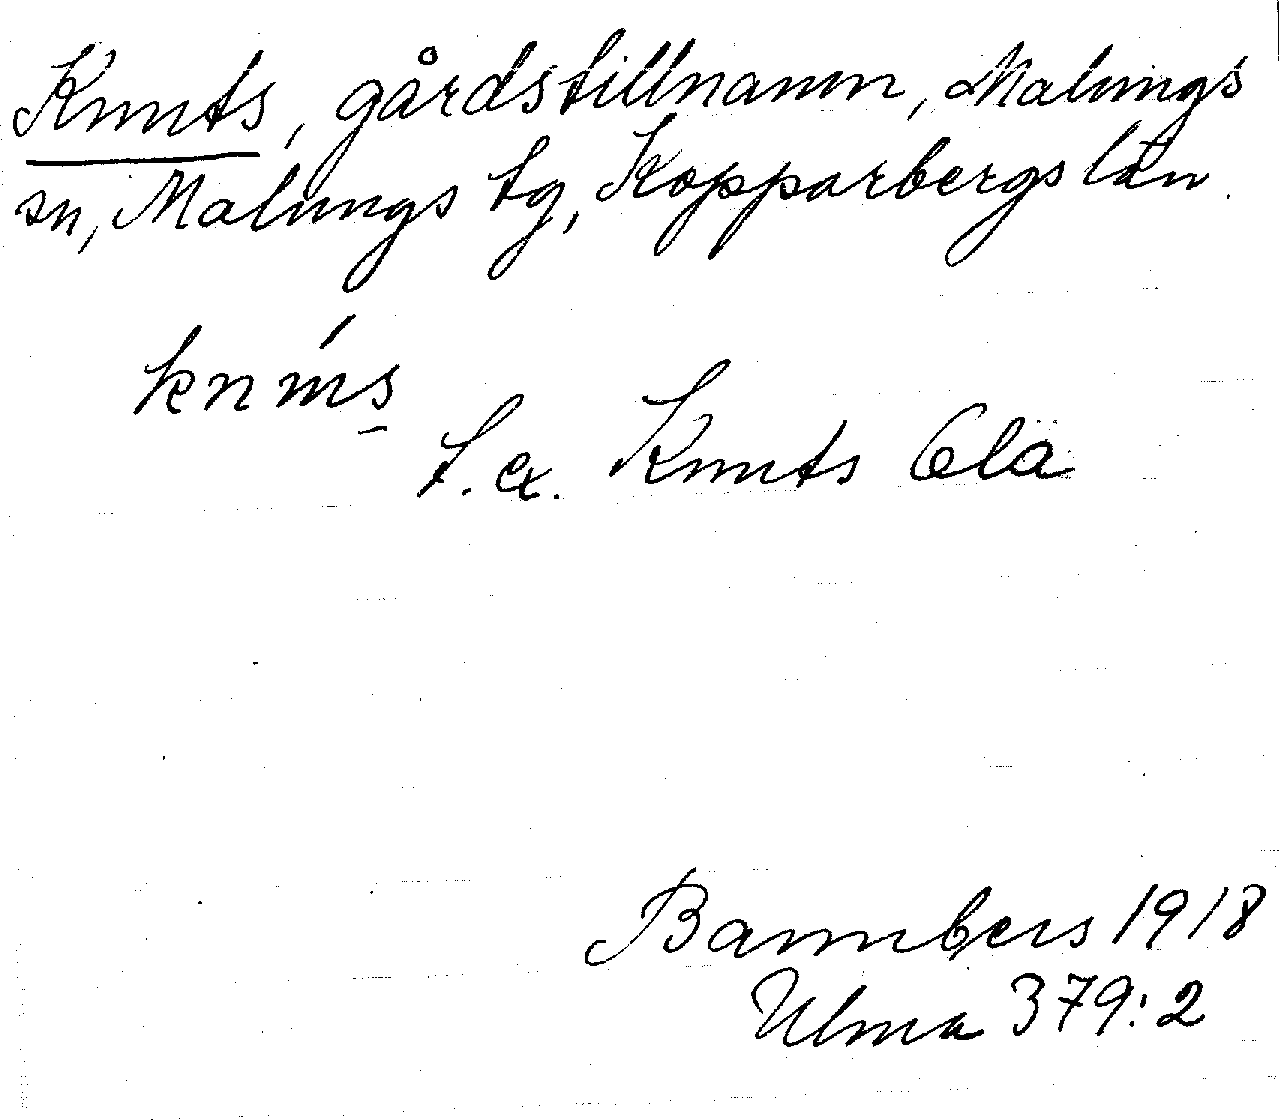 Knuts, gårdstillnamn, Malungs
sn, Malungs tg, Kopparbergs län.
t.ex. Knuts Ola
Bannbers 1918
Ulma 379:2